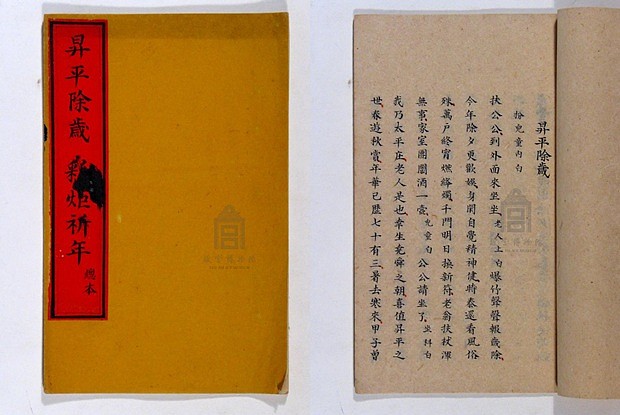 昇平除歲 新炬祈年 總本
昇平除歲
拾兒童內白
扶公公到外面來坐坐老人上白爆竹聲聲報歲除
今年除夕更歡娛身閑自覺精神健時泰還看風俗
殊萬戶終宵燃絳燭千門明日換新符老翁扶杖渾
無事家室團圞酒一壺兒童白公公請坐了坐科白
我乃太平庄老人是也幸生堯舜之朝喜值昇平之
世春遊秋賞年華已歷七十有三暑去寒來甲子曾